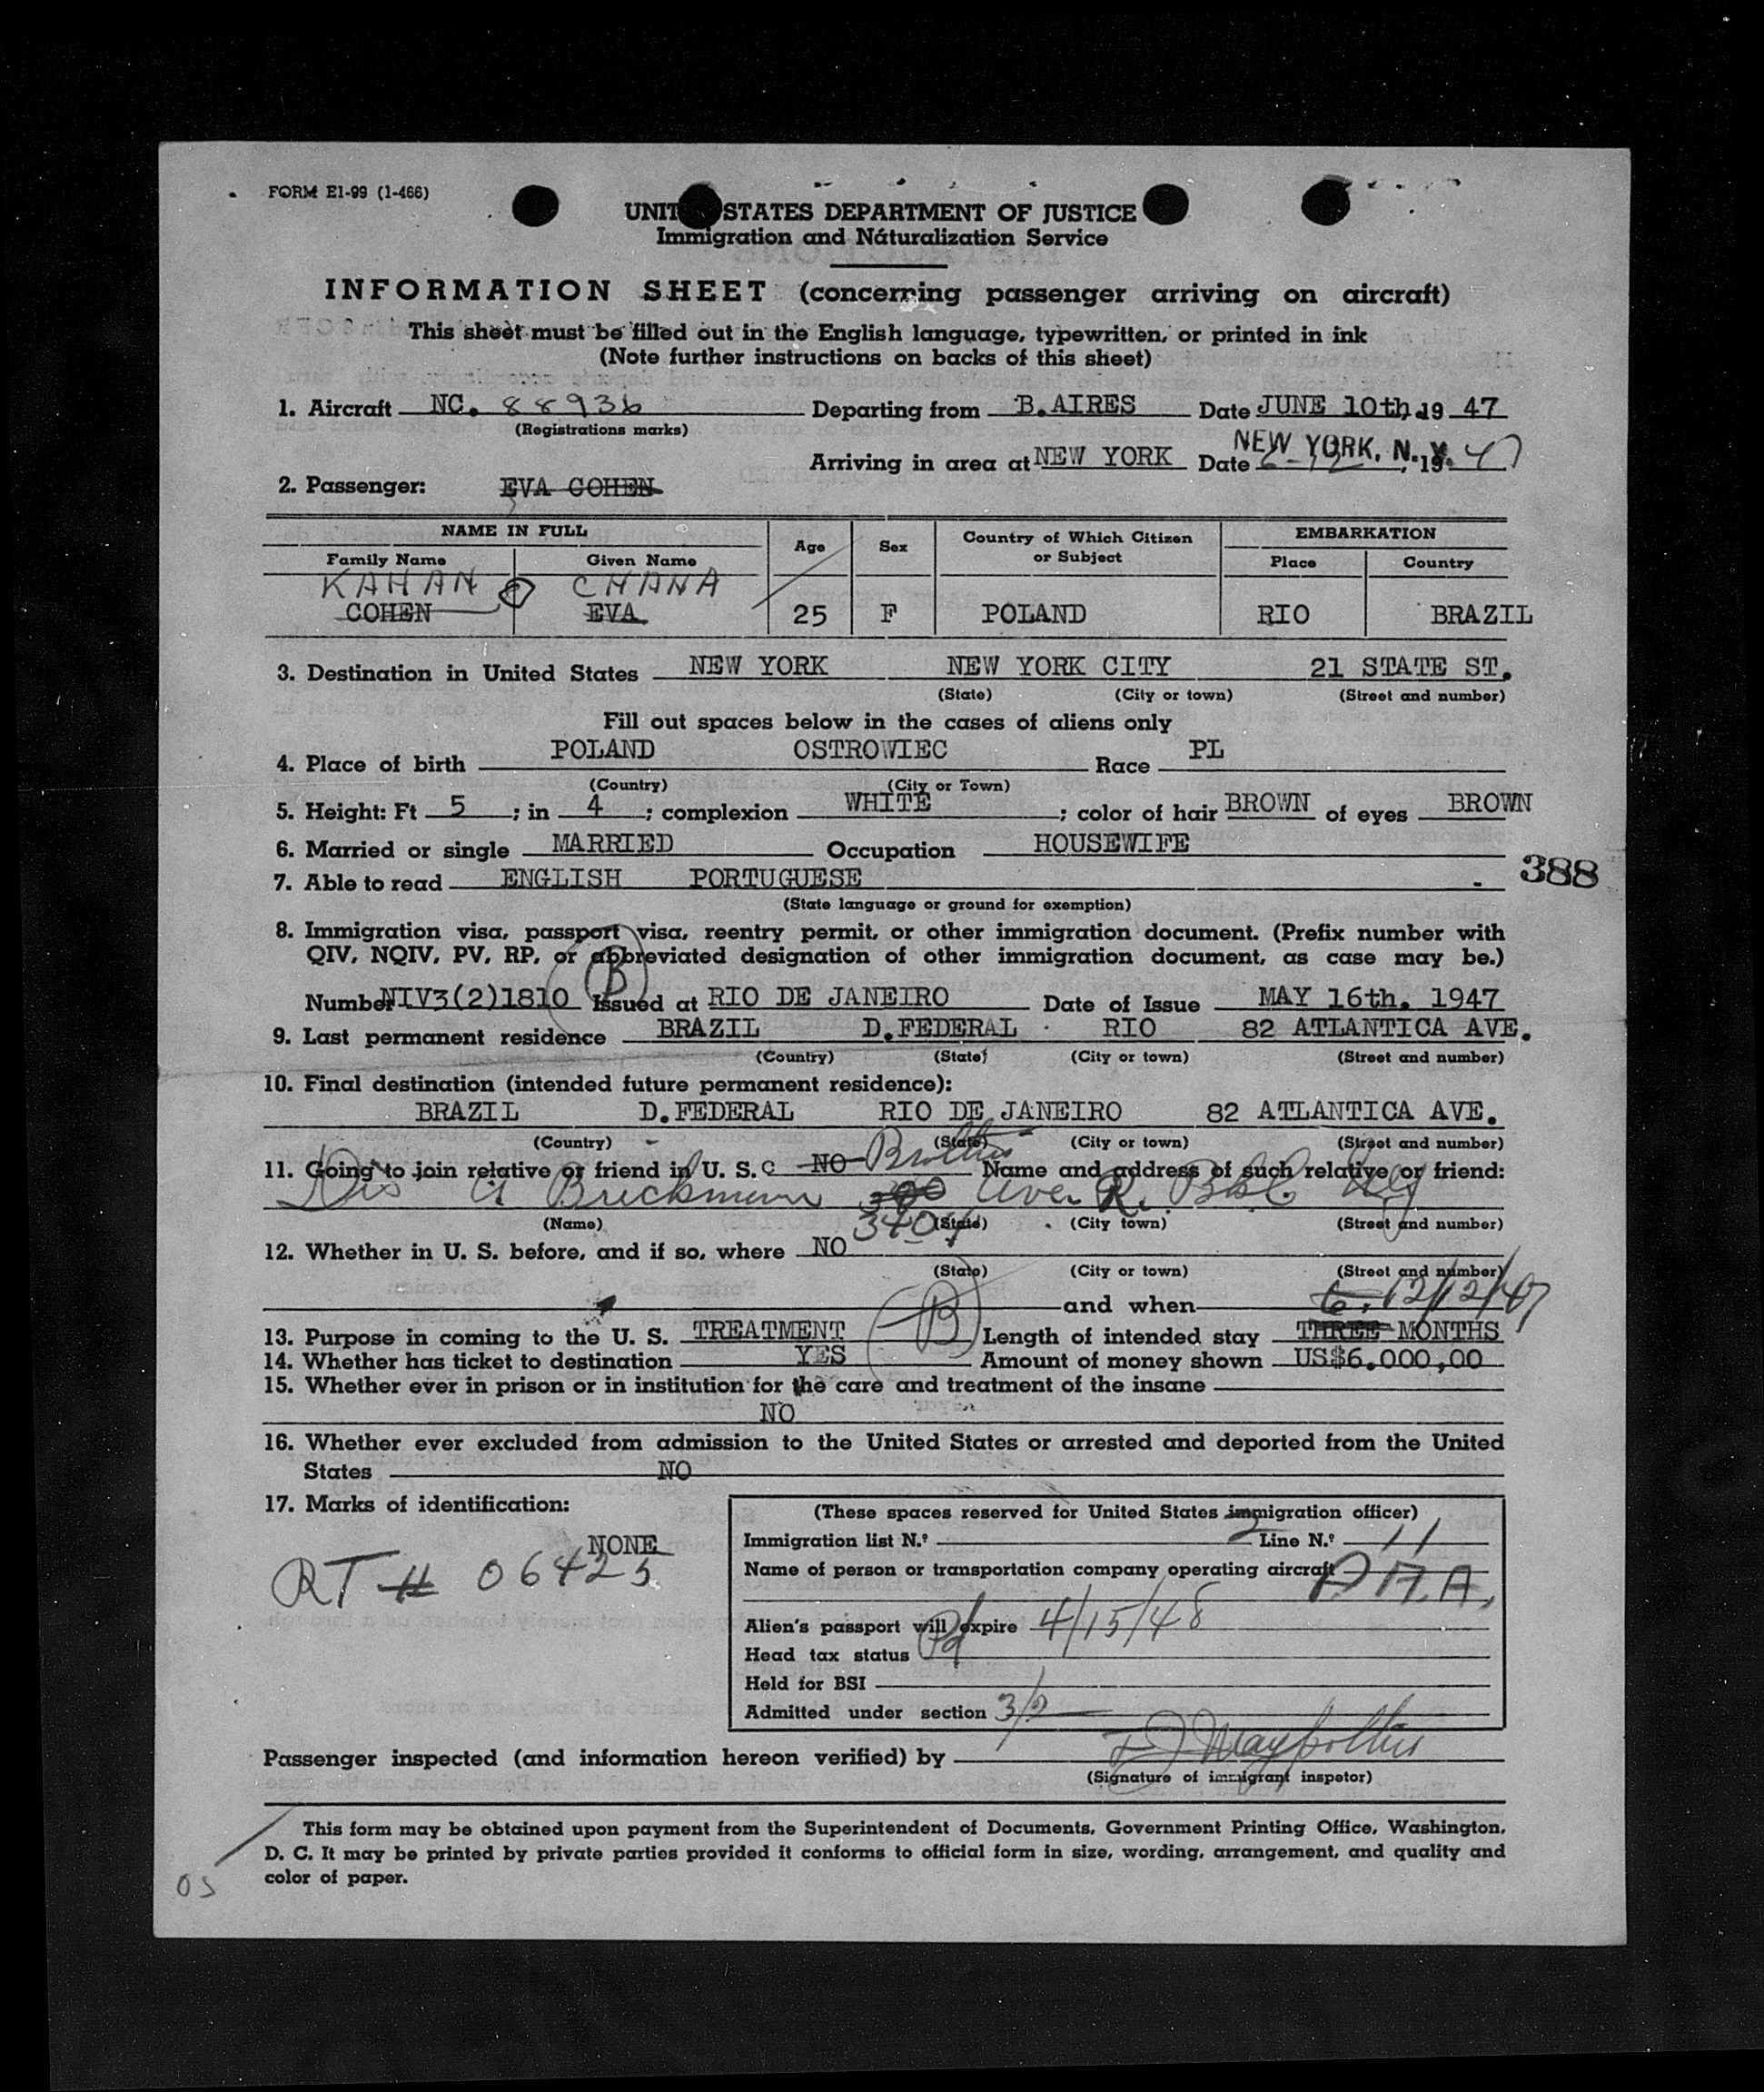 FORM E1-99 (1-466)
UNIT STATES DEPARTMENT OF JUSTICE
Immigration and Naturalization Service
INFORMATION SHEET (concerning passenger arriving on aircraft)
This sheet must be filled out in the English language, typewritten, or printed in ink
(Note further instructions on backs of this sheet)
1. Aircraft NC. 88936 Departing from B.AIRES Date JUNE 10th, 19 47
(Registrations marks)
NEW YORK, N. Y.
Arriving in area at NEW YORK Date 6-12, 19 47
2. Passenger: EVA COHEN
NAME IN FULL Age Sex Country of Which Citizen or Subject EMBARKATION
Family Name Given Name Place Country
KAHAN CHANA
COHEN EVA 25 F POLAND RIO BRAZIL
3. Destination in United States NEW YORK NEW YORK CITY 21 STATE ST.
(State) (City or town) (Street and number)
Fill out spaces below in the cases of aliens only
4. Place of birth POLAND OSTROWIEC Race PL
(Country) (City or Town)
5. Height: Ft 5 ; in 4 ; complexion WHITE ; color of hair BROWN of eyes BROWN
6. Married or single MARRIED Occupation HOUSEWIFE
7. Able to read ENGLISH PORTUGUESE
388
(State language or ground for exemption)
8. Immigration visa, passport visa, reentry permit, or other immigration document. (Prefix number with
QIV, NQIV, PV, RP, or abbreviated designation of other immigration document, as case may be.)
B
Number NIV3(2)1810 Issued at RIO DE JANEIRO Date of Issue MAY 16th. 1947
9. Last permanent residence BRAZIL D.FEDERAL RIO 82 ATLANTICA AVE.
(Country) (State) (City or town) (Street and number)
10. Final destination (intended future permanent residence):
BRAZIL D.FEDERAL RIO DE JANEIRO 82 ATLANTICA AVE.
(Country) (State) (City or town) (Street and number)
11. Going to join relative or friend in U. S. NO Brother Name and address of such relative or friend:
Brickman 300 Ave R.
3404
(Name) (State) (City town) (Street and number)
12. Whether in U. S. before, and if so, where NO
(State) (City or town) (Street and number)
and when
12/12/47
13. Purpose in coming to the U. S. TREATMENT B Length of intended stay THREE MONTHS
14. Whether has ticket to destination YES Amount of money shown US$6.000,00
15. Whether ever in prison or in institution for the care and treatment of the insane
NO
16. Whether ever excluded from admission to the United States or arrested and deported from the United
States NO
17. Marks of identification:
NONE
RT # 06425
(These spaces reserved for United States immigration officer)
Immigration list N.º 2 Line N.º 11
Name of person or transportation company operating aircraft P.A.A.
Alien's passport will expire 4/15/48
Head tax status Pd
Held for BSI
Admitted under section 3/2
Passenger inspected (and information hereon verified) by
(Signature of immigrant inspetor)
This form may be obtained upon payment from the Superintendent of Documents, Government Printing Office, Washington,
D. C. It may be printed by private parties provided it conforms to official form in size, wording, arrangement, and quality and
color of paper.